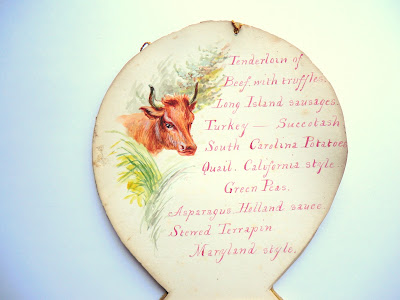 Tenderloin of
Beef. with truffles.
Long Island sausages.
Turkey — Succotash
South Carolina Potatoes
Quail. California style
Green Peas.
Asparagus Holland sauce
Stewed Terrapin
Maryland style.